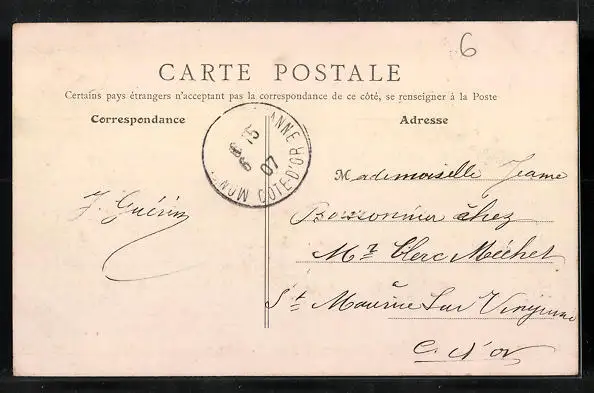 6
CARTE POSTALE
Certains pays étrangers n'acceptant pas la correspondance de ce côté, se renseigner à la Poste
Correspondance
Adresse
15
6
07
COTE-D'OR
J. Guérin
Mademoiselle Jeanne
Boissonnier chez
Mr Clerc Méchet
à
St Maurice Sur Vingeanne
C. d'or